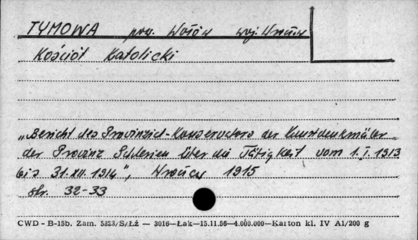 TYMOWA pow. Wołów woj. Wrocław
Kościół Katolicki
„Bericht des Provinzial-Konservators der Kunstdenkmäler
der Provinz Schlesien über die Tätigkeit vom 1.I.1913
bis 31.XII.1914", Wrocław 1915
str. 32-33
CWD - B-15b. Zam. 5323/S/ŁŻ — 3016—Łak—15.11.56—4.000.000—Karton kl. IV A1/200 g